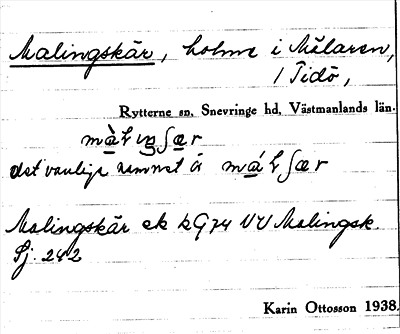 Malingskär, holme i Mälaren,
/ Tidö,
Rytterne sn, Snevringe hd, Västmanlands län.
det vanliga namnet är
Malingskär ek kG74 NV Malingsk.
Sj. 242
Karin Ottosson 1938.